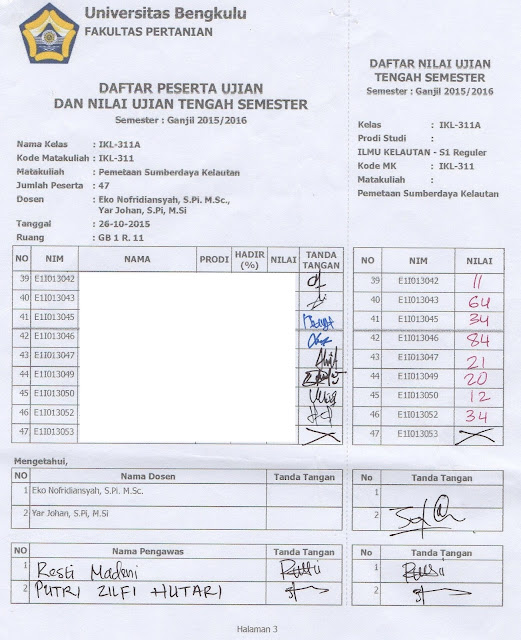 Universitas Bengkulu
FAKULTAS PERTANIAN
DAFTAR PESERTA UJIAN
DAN NILAI UJIAN TENGAH SEMESTER
Semester : Ganjil 2015/2016
Nama Kelas : IKL-311A
Kode Matakuliah : IKL-311
Matakuliah : Pemetaan Sumberdaya Kelautan
Jumlah Peserta : 47
Dosen : Eko Nofridiansyah, S.Pi. M.Sc.,
Yar Johan, S.Pi, M.Si
Tanggal : 26-10-2015
Ruang : GB 1 R. 11
DAFTAR NILAI UJIAN
TENGAH SEMESTER
Semester : Ganjil 2015/2016
Kelas : IKL-311A
Prodi Studi :
ILMU KELAUTAN - S1 Reguler
Kode MK : IKL-311
Matakuliah :
Pemetaan Sumberdaya Kelautan
NO NIM NAMA PRODI HADIR (%) NILAI TANDA TANGAN
39 E1I013042
40 E1I013043
41 E1I013045
42 E1I013046
43 E1I013047
44 E1I013049
45 E1I013050
46 E1I013052
47 E1I013053
NO NIM NILAI
39 E1I013042 11
40 E1I013043 64
41 E1I013045 34
42 E1I013046 84
43 E1I013047 21
44 E1I013049 20
45 E1I013050 12
46 E1I013052 34
47 E1I013053
Mengetahui,
NO Nama Dosen Tanda Tangan
1 Eko Nofridiansyah, S.Pi. M.Sc.
2 Yar Johan, S.Pi, M.Si
No Tanda Tangan
1
2
NO Nama Pengawas Tanda Tangan
1 Resti Madeni
2 PUTRI ZILFI HUTARI
No Tanda Tangan
1
2
Halaman 3